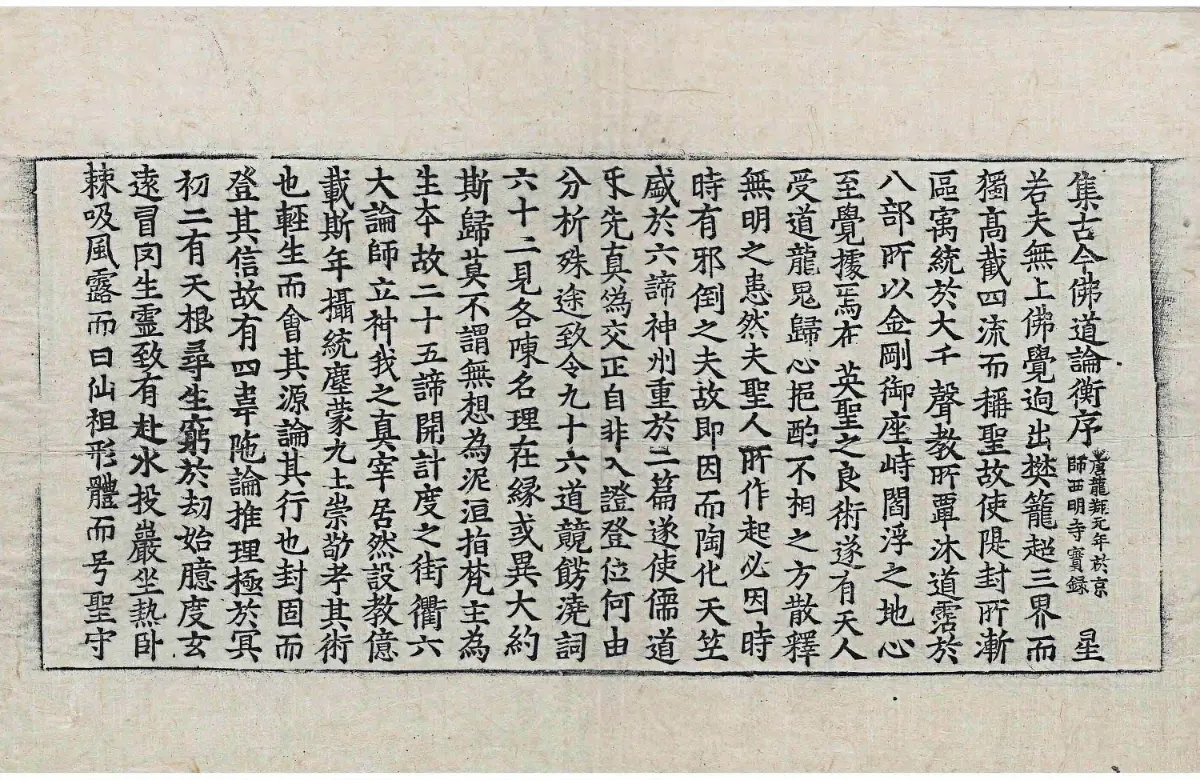 集古今佛道論衡序 唐龍朔元年於京師西明寺實錄 㞷
若夫無上佛覺逈出樊籠超三界而
獨高截四流而稱聖故使隄封所漸
區寓統於大千聲教所覃沐道霑於
八部所以金剛御座峙閻浮之地心
至覺據焉在英聖之良術遂有天人
受道龍鬼歸心挹酌不相之方散釋
無明之患然夫聖人所作起必因時
時有邪倒之夫故即因而陶化天竺
盛於六諦神州重於二篇遂使儒道
乐先真偽交正自非入證登位何由
分析殊途致令九十六道競餝澆詞
六十二見各陳名理在緣或異大約
斯歸莫不謂無想為泥洹指梵主為
生夲故二十五諦開計度之街衢六
大論師立神我之真宰居然設教億
載斯年攝統塵蒙九土崇敬孝其術
也輕生而會其源論其行也封固而
登其信故有四韋陁論推理極於冥
初二有天根尋生窮於劫始臆度玄
遠冒罔生靈致有赴水投巖坐熱卧
棘吸風露而曰仙袒形體而号聖守